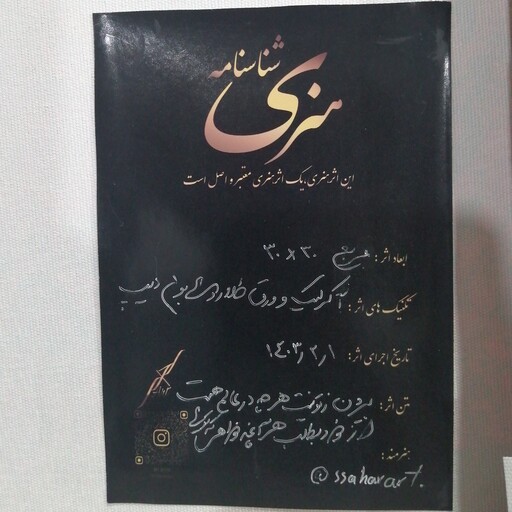 شناسنامه
هنری
این اثر هنری، یک اثر هنری معتبر و اصل است
ابعاد اثر: مربع ۳۰×۳۰
تکنیک های اثر: آکرلیک و ورق طلا روی بوم دیپ
تاریخ اجرای اثر: ۱۴۰۳/۲/۱
متن اثر: بیرون ز تو نیست هرچه در عالم هست
از خود بطلب هر آنچه خواهی که تویی
هنرمند:
@ssaharart.